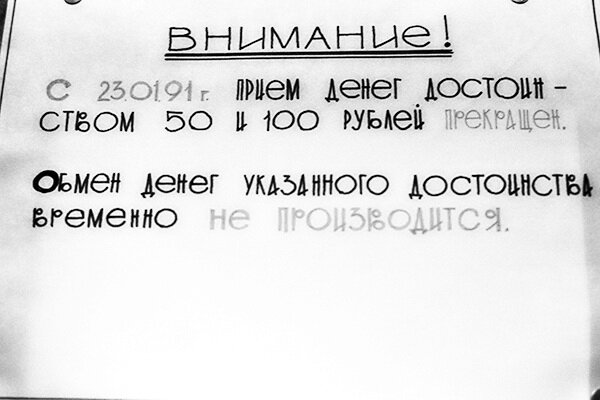 ВНИМАНИЕ!
С 23.01.91 г. ПРИЕМ ДЕНЕГ ДОСТОИН-
СТВОМ 50 И 100 РУБЛЕЙ ПРЕКРАЩЕН.
ОБМЕН ДЕНЕГ УКАЗАННОГО ДОСТОИНСТВА
ВРЕМЕННО НЕ ПРОИЗВОДИТСЯ.